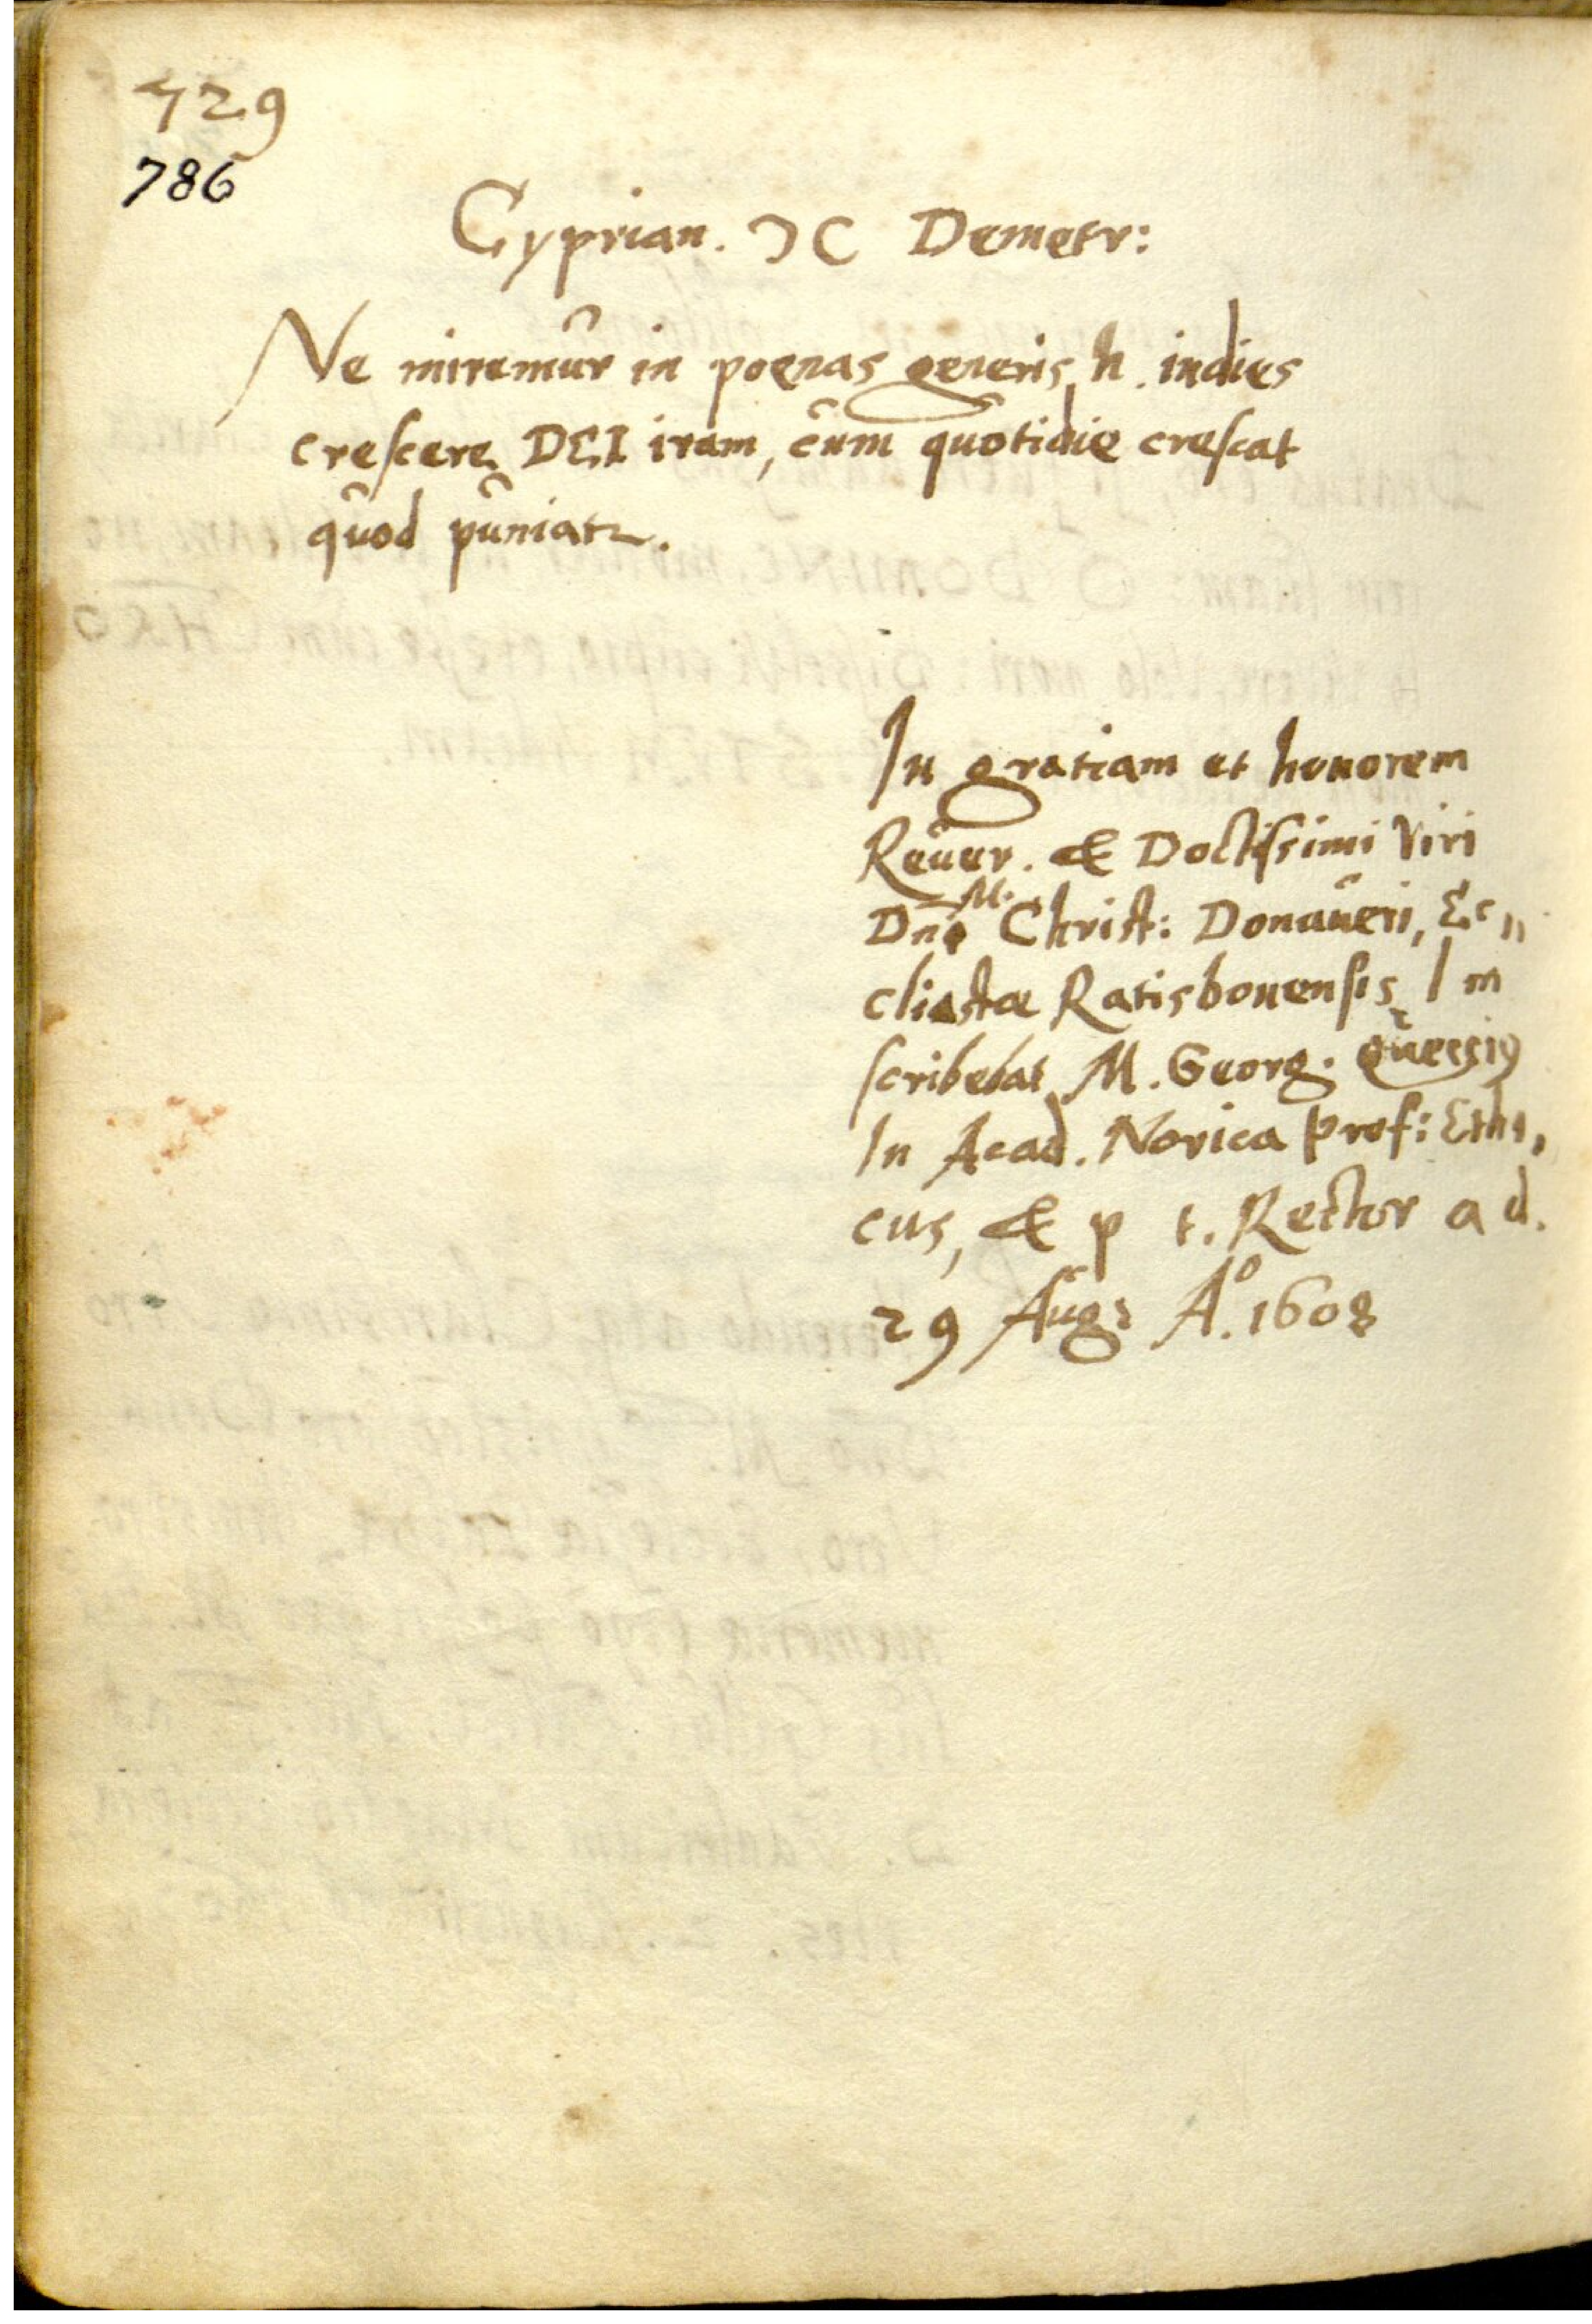 729
786
Cyprian. ƆC Demetr:
Ne miremur in poenas generis h. indies
crescere DEI iram, cum quotidie crescat
quod puniatr.
In gratiam et honorem
Reuer. & Doctissimi Viri
Dn̄i M. Christ: Donaueri, Ec„
cliastæ Ratisbonensis, Im
scribebat M. Georg. Queccig
In Acad. Norica prof: Ethi„
cus, & p t. Rector a d.
29 Aug: A.º 1608